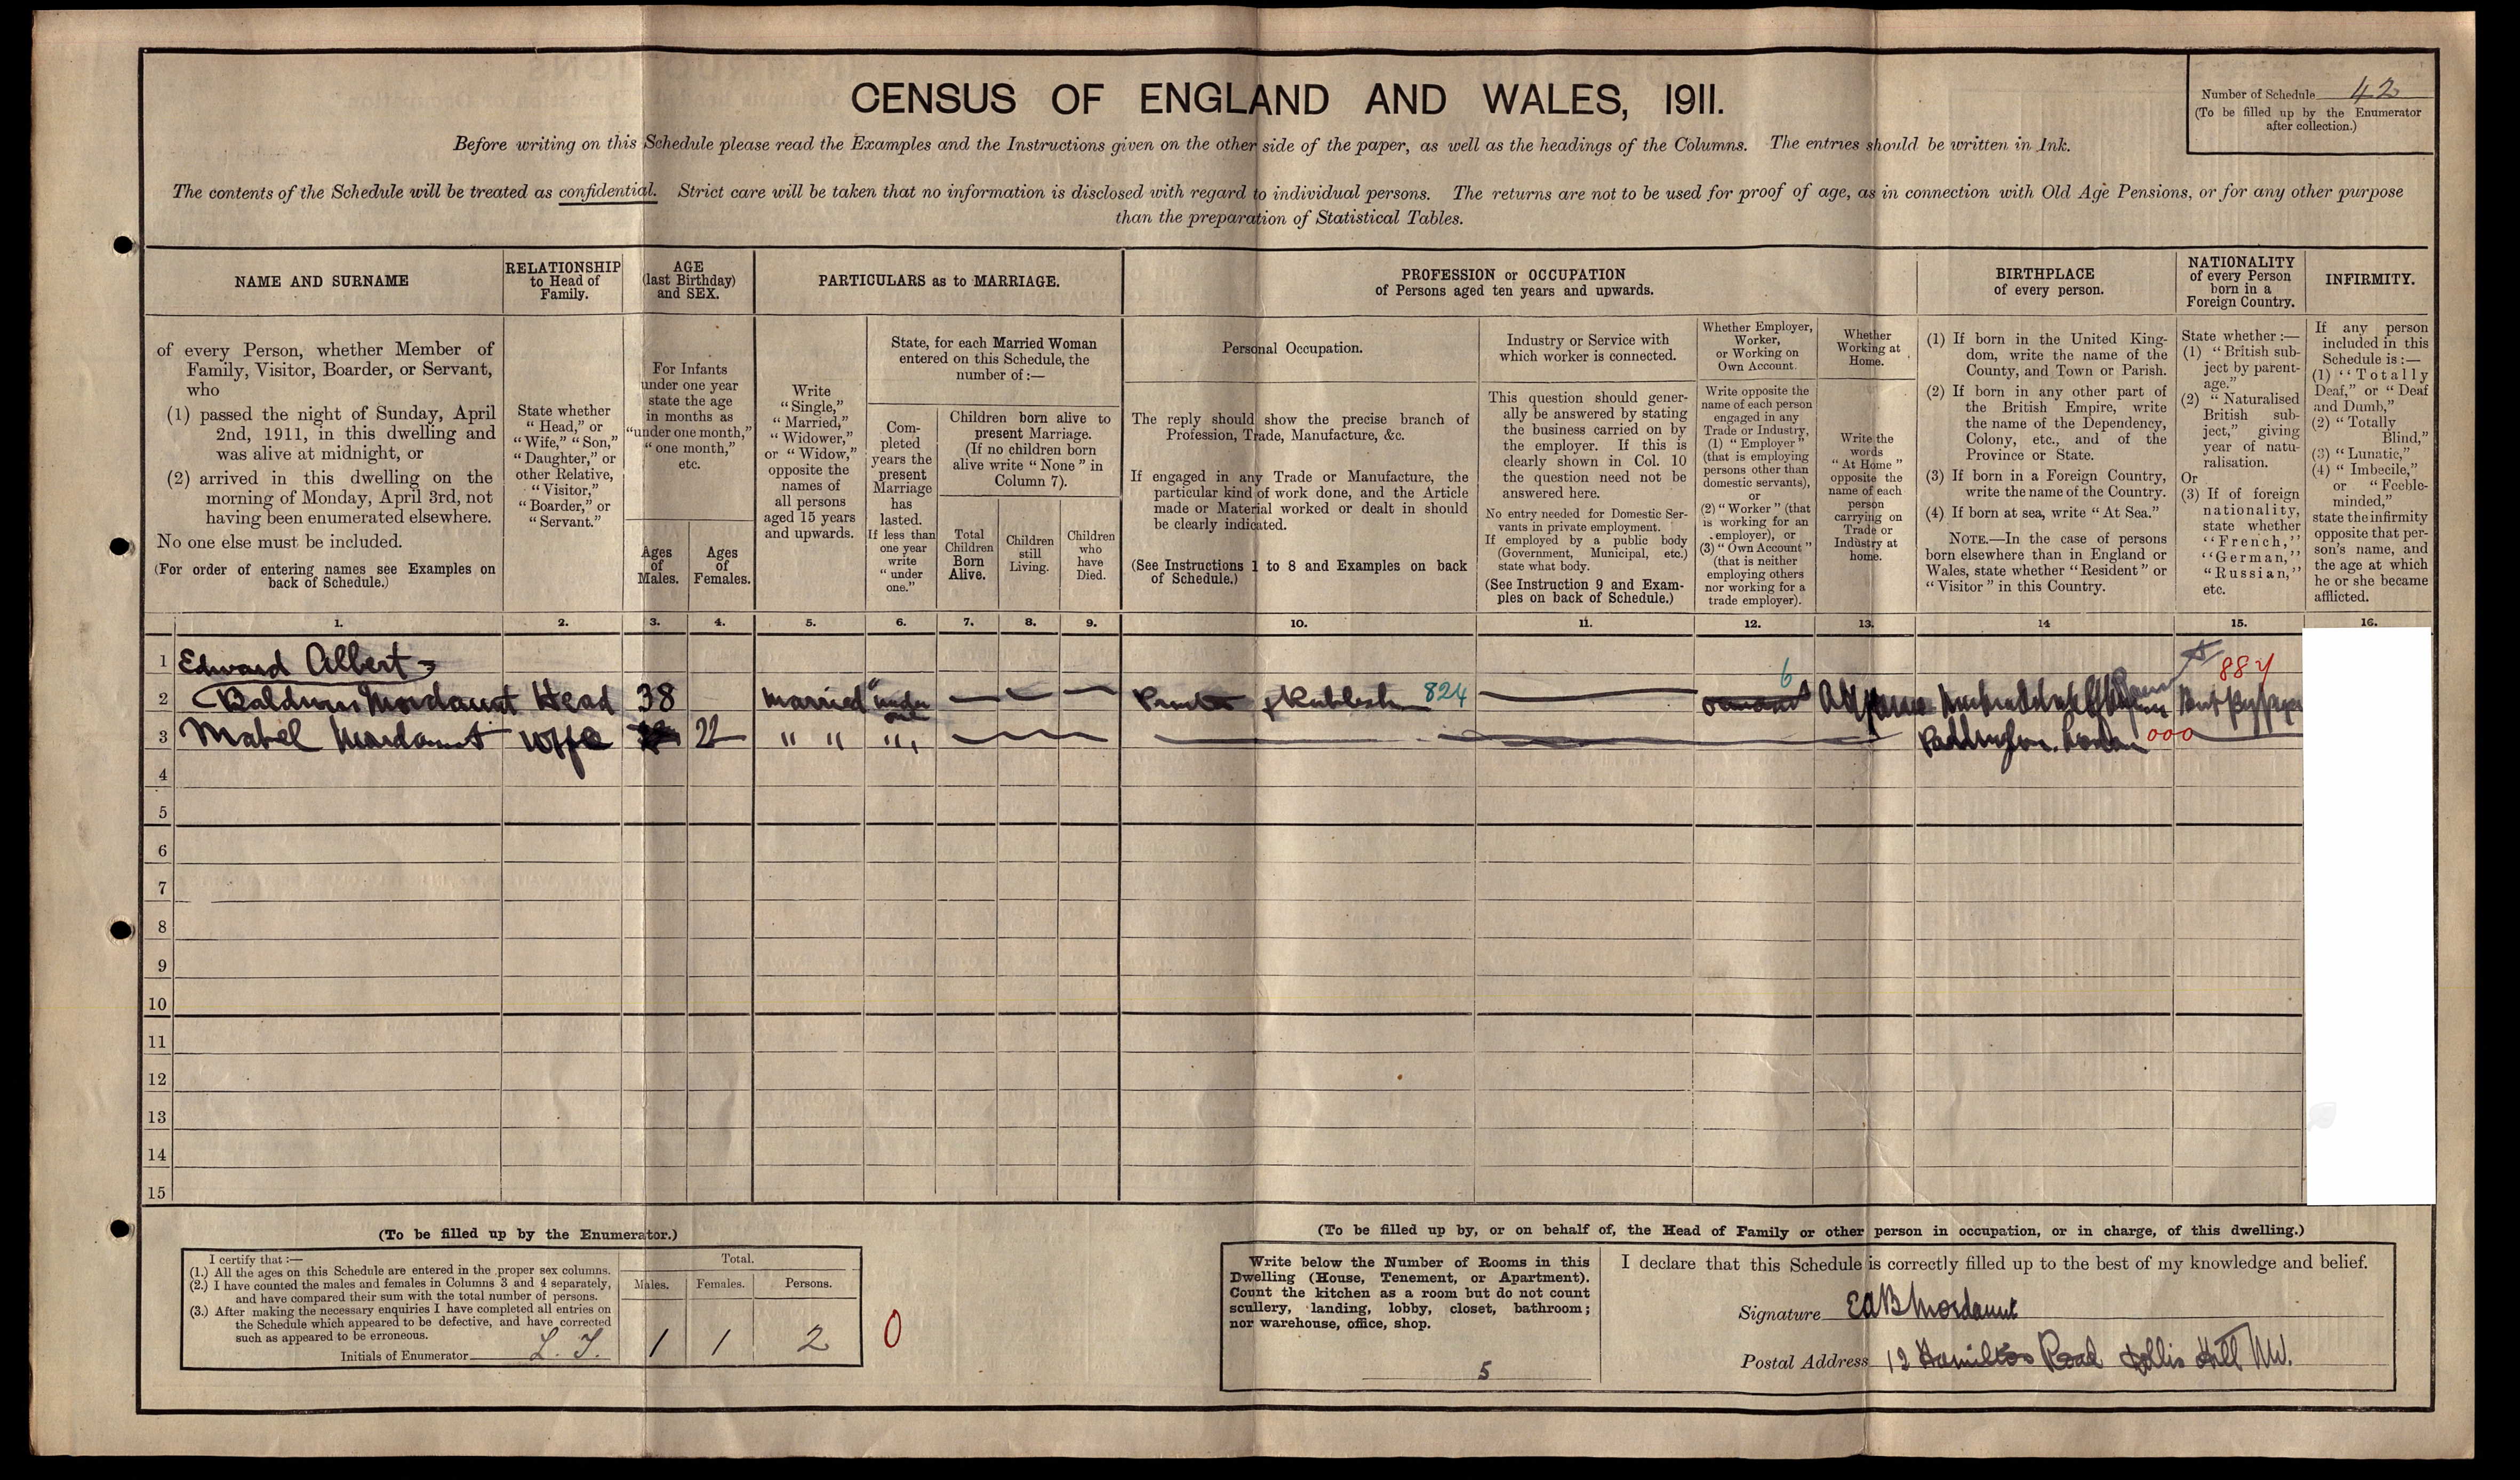 CENSUS OF ENGLAND AND WALES, 1911.
Number of Schedule 42
(To be filled up by the Enumerator
after collection.)
Before writing on this Schedule please read the Examples and the Instructions given on the other side of the paper, as well as the headings of the Columns. The entries should be written in Ink.
The contents of the Schedule will be treated as confidential. Strict care will be taken that no information is disclosed with regard to individual persons. The returns are not to be used for proof of age, as in connection with Old Age Pensions, or for any other purpose
than the preparation of Statistical Tables.
NAME AND SURNAME
of every Person, whether Member of
Family, Visitor, Boarder, or Servant,
who
(1) passed the night of Sunday, April
2nd, 1911, in this dwelling and
was alive at midnight, or
(2) arrived in this dwelling on the
morning of Monday, April 3rd, not
having been enumerated elsewhere.
No one else must be included.
(For order of entering names see Examples on
back of Schedule.)
RELATIONSHIP
to Head of
Family.
State whether
"Head," or
"Wife," "Son,"
"Daughter," or
other Relative,
"Visitor,"
"Boarder," or
"Servant."
AGE
(last Birthday)
and SEX.
For Infants
under one year
state the age
in months as
"under one month,"
"one month,"
etc.
Ages
of
Males.
Ages
of
Females.
PARTICULARS as to MARRIAGE.
Write
"Single,"
"Married,"
"Widower,"
or "Widow,"
opposite the
names of
all persons
aged 15 years
and upwards.
State, for each Married Woman
entered on this Schedule, the
number of :—
Com-
pleted
years the
present
Marriage
has
lasted.
If less than
one year
write
"under
one."
Children born alive to
present Marriage.
(If no children born
alive write "None" in
Column 7).
Total
Children
Born
Alive.
Children
still
Living.
Children
who
have
Died.
PROFESSION or OCCUPATION
of Persons aged ten years and upwards.
Personal Occupation.
The reply should show the precise branch of
Profession, Trade, Manufacture, &c.
If engaged in any Trade or Manufacture, the
particular kind of work done, and the Article
made or Material worked or dealt in should
be clearly indicated.
(See Instructions 1 to 8 and Examples on back
of Schedule.)
Industry or Service with
which worker is connected.
This question should gener-
ally be answered by stating
the business carried on by
the employer. If this is
clearly shown in Col. 10
the question need not be
answered here.
No entry needed for Domestic Ser-
vants in private employment.
If employed by a public body
(Government, Municipal, etc.)
state what body.
(See Instruction 9 and Exam-
ples on back of Schedule.)
Whether Employer,
Worker,
or Working on
Own Account.
Write opposite the
name of each person
engaged in any
Trade or Industry,
(1) "Employer"
(that is employing
persons other than
domestic servants),
or
(2) "Worker" (that
is working for an
employer), or
(3) "Own Account"
(that is neither
employing others
nor working for a
trade employer).
Whether
Working at
Home.
Write the
words
"At Home"
opposite the
name of each
person
carrying on
Trade or
Industry at
home.
BIRTHPLACE
of every person.
(1) If born in the United King-
dom, write the name of the
County, and Town or Parish.
(2) If born in any other part of
the British Empire, write
the name of the Dependency,
Colony, etc., and of the
Province or State.
(3) If born in a Foreign Country,
write the name of the Country.
(4) If born at sea, write "At Sea."
NOTE.—In the case of persons
born elsewhere than in England or
Wales, state whether "Resident" or
"Visitor" in this Country.
NATIONALITY
of every Person
born in a
Foreign Country.
State whether :—
(1) "British sub-
ject by parent-
age."
(2) "Naturalised
British sub-
ject," giving
year of natu-
ralisation.
Or
(3) If of foreign
nationality,
state whether
"French,"
"German,"
"Russian,"
etc.
INFIRMITY.
If any person
included in this
Schedule is :—
(1) "Totally
Deaf," or "Deaf
and Dumb,"
(2) "Totally
Blind,"
(3) "Lunatic,"
(4) "Imbecile,"
or "Feeble-
minded,"
state the infirmity
opposite that per-
son's name, and
the age at which
he or she became
afflicted.
1. 2. 3. 4. 5. 6. 7. 8. 9. 10. 11. 12. 13. 14 15. 16.
1 Edward Albert
2 Mordaunt Head 38 Married under one 824 6 884
3 Mabel Mordaunt Wife 22 " " " Paddington London 000
4
5
6
7
8
9
10
11
12
13
14
15
(To be filled up by the Enumerator.)
I certify that :—
(1.) All the ages on this Schedule are entered in the proper sex columns.
(2.) I have counted the males and females in Columns 3 and 4 separately,
and have compared their sum with the total number of persons.
(3.) After making the necessary enquiries I have completed all entries on
the Schedule which appeared to be defective, and have corrected
such as appeared to be erroneous.
Initials of Enumerator
Total.
Males. Females. Persons.
1 1 2
0
(To be filled up by, or on behalf of, the Head of Family or other person in occupation, or in charge, of this dwelling.)
Write below the Number of Rooms in this
Dwelling (House, Tenement, or Apartment).
Count the kitchen as a room but do not count
scullery, landing, lobby, closet, bathroom;
nor warehouse, office, shop.
5
I declare that this Schedule is correctly filled up to the best of my knowledge and belief.
Signature EAB Mordaunt
Postal Address 12 Hamilton Road Dollis Hill NW.